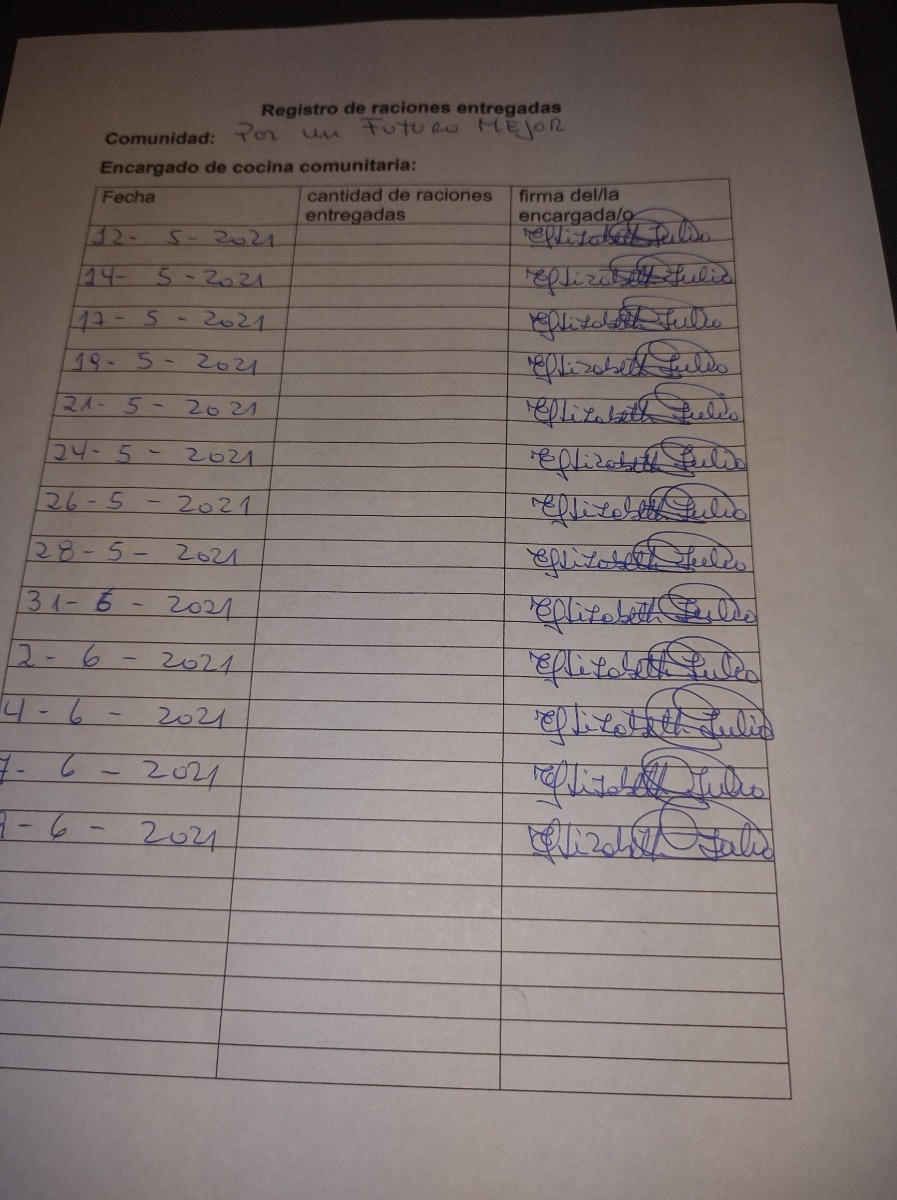 Registro de raciones entregadas
Comunidad: Por un FUTURO MEJOR
Encargado de cocina comunitaria:
Fecha cantidad de raciones entregadas firma del/la encargada/o
12- 5-2021 Elizabeth Julio
14- 5-2021 Elizabeth Julio
17-5-2021 Elizabeth Julio
19-5-2021 Elizabeth Julio
21-5-2021 Elizabeth Julio
24-5-2021 Elizabeth Julio
26-5-2021 Elizabeth Julio
28-5-2021 Elizabeth Julio
31-6-2021 Elizabeth Julio
2-6-2021 Elizabeth Julio
4-6-2021 Elizabeth Julio
7-6-2021 Elizabeth Julio
9-6-2021 Elizabeth Julio